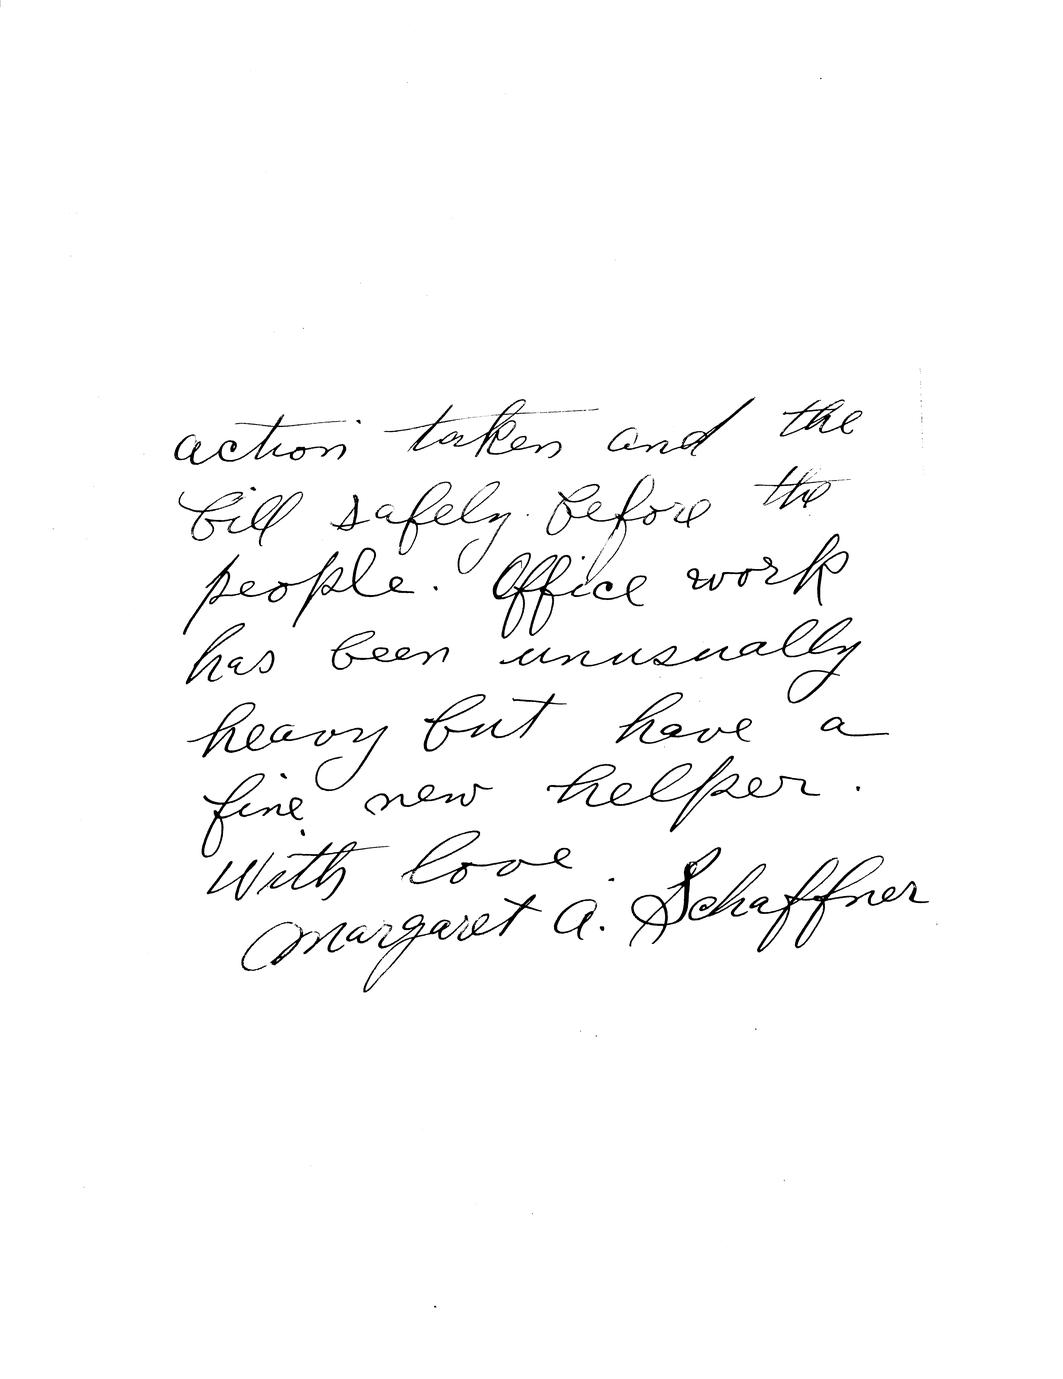 action taken and the
bill safely before the
people. Office work
has been unusually
heavy but have a
fine new helper.
With love.
Margaret A. Schaffner